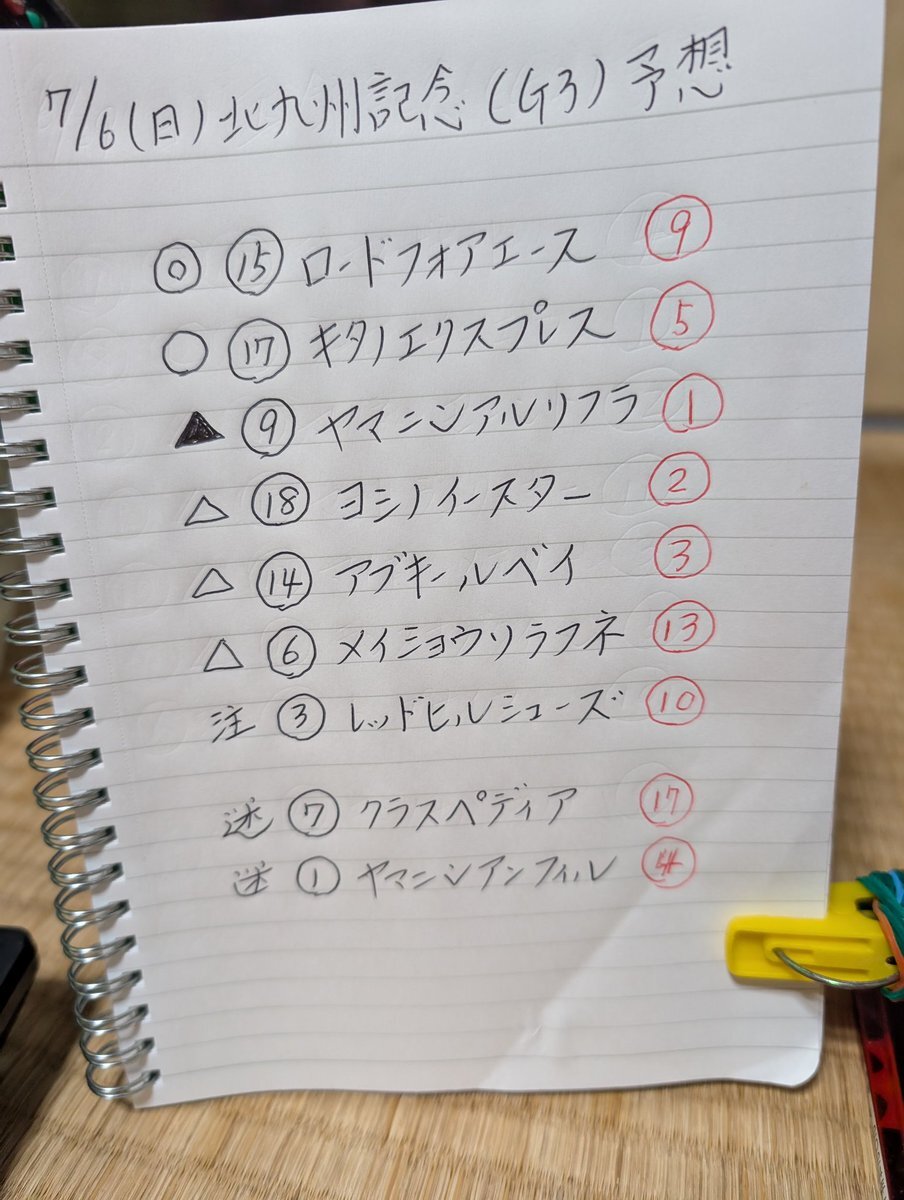 7/6(日)北九州記念(G3)予想
◎ ⑮ ロードフォアエース ⑨
○ ⑰ キタノエクスプレス ⑤
▲ ⑨ ヤマニンアルリフラ ①
△ ⑱ ヨシノイースター ②
△ ⑭ アブキールベイ ③
△ ⑥ メイショウソラフネ ⑬
注 ③ レッドヒルシューズ ⑩
迷 ⑦ クラスペディア ⑰
迷 ① ヤマニンアンフィル